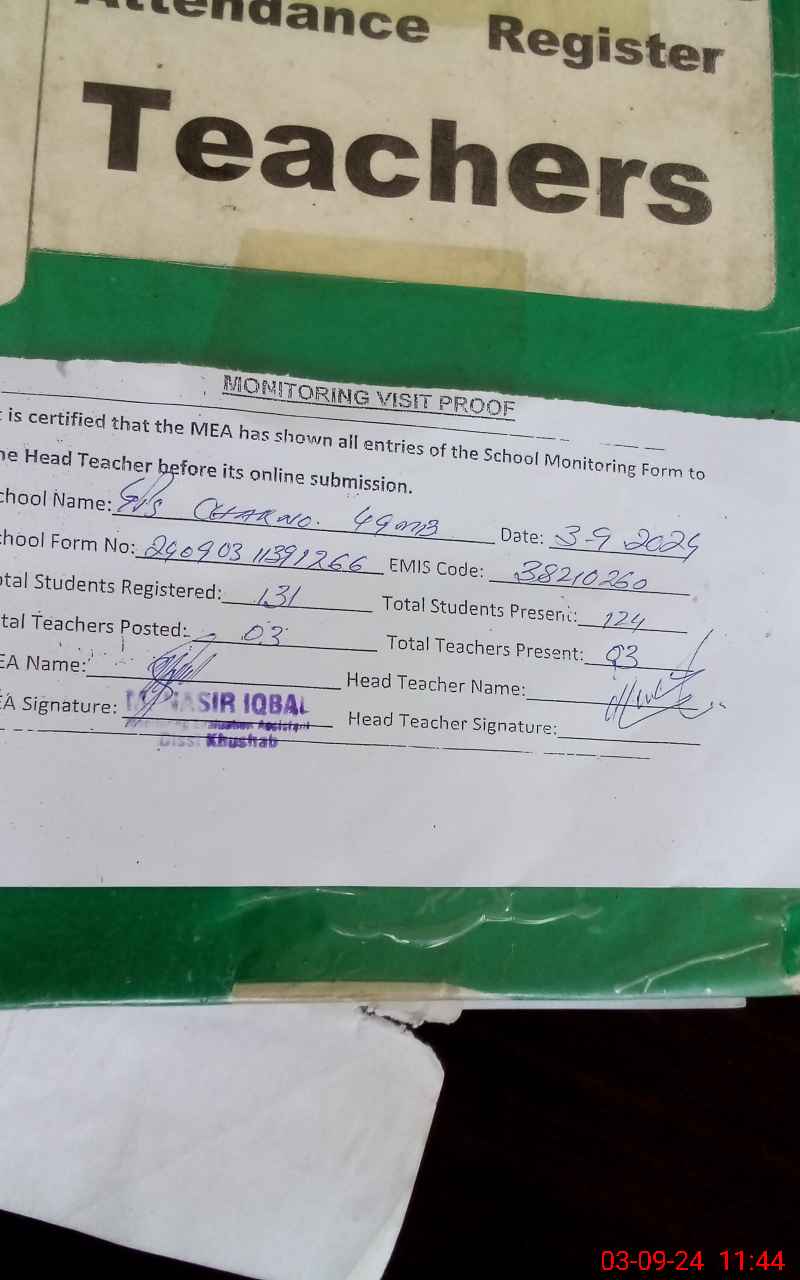 Attendance Register
Teachers
MONITORING VISIT PROOF
is certified that the MEA has shown all entries of the School Monitoring Form to
he Head Teacher before its online submission.
chool Name: GPS CHAK NO. 49 MB Date: 3-9 2024
chool Form No: 24090311391266 EMIS Code: 38210260
otal Students Registered: 131 Total Students Present: 124
tal Teachers Posted: 03 Total Teachers Present: 03
EA Name: Head Teacher Name:
EA Signature: NASIR IQBAL Head Teacher Signature:
Monitoring Evaluation Assistant
Disst Khushab
03-09-24 11:44